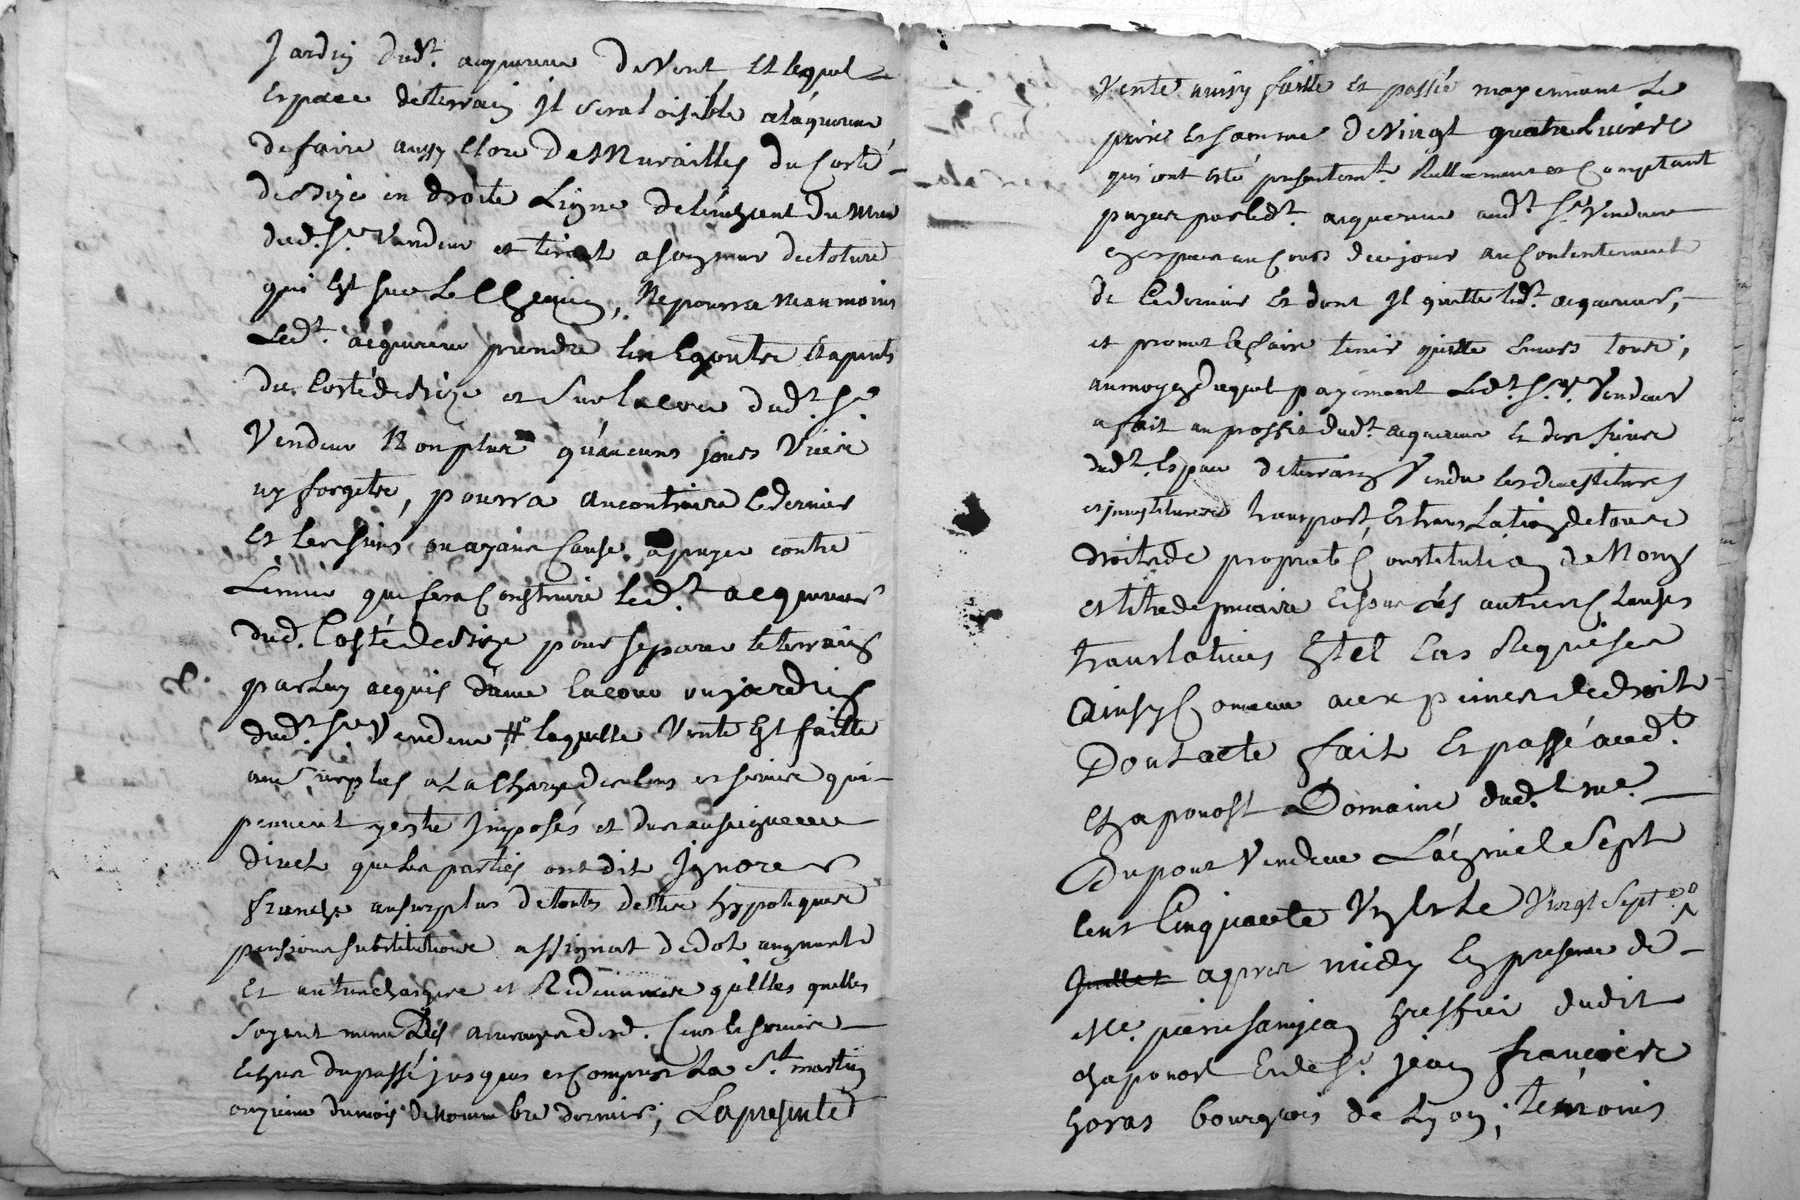 Jardin dud.t acquereur de Vent et lequel
Espace de terrain Il sera loisible a laquereur
de faire aussy Clore de Murailles du Costé
de bize en droite Ligne de l'engent du mur
dud. S.r Vendeur et tirant a
qui Est sur Le Chemin, Ne pourra Neanmoins
Led.t acquereur prendre les Egoutz
du Costé de bize et sur la Cour dud.t S.r
Vendeur Non plus qu'aucuns jours Vuües
ny forgetz, pourra au contraire le dernier
Et les siens ou ayans Cause apuyer contre
Le mur que fera Construire led.t acquereur
dud. Costé de bize pour separer le terrain
par Luy acquis d'avec la Cour ou jardin
dud.t S.r Vendeur # laquelle Vente Est faitte
a La Charge des Cens et servis qui
peuvent y estre Imposés et deus au seigneur
direct que les parties ont dit Ignorer
franche au surplus de toutes dettes hypoteques
pensions substitutions assignat de dot augment
Et autres charges et Redevances qu'elles quelles
soyent meme des arrerages desd. Cens et servis
Echus du passé jusques et Compris La S.t martin
onzieme du mois de Novembre dernier; La presente
Vente ainsy faitte Et passée moyennant Le
prix Et somme de Vingt quatre Livres
qui ont esté presentem.t Reellement et Comptant
payés par led.t acquereur aud.t S.r Vendeur
en especes au Cours de ce jour au Contentement
de Ce dernier Et dont Il quitte led.t acquereur,
et promet le faire tenir quitte Envers tous;
au moyen duquel payement Led.t S.r Vendeur
a fait au proffit dud.t acquereur Et des siens
dud.t Espace de terrain Vendu les devestitures
et investitures transport, Et translation de tous
droits de proprieté Constitution de Nom
et titre de precaire Et tous autres Clauses
translatives Et tel Cas Requises
Ainsy Comme aux peines de droit
Dont acte fait Et passé aud.t
Chaponost Domaine dud.t me.
Dupont Vendeur L'an mil Sept
Cent Cinquante Vingt Sept
Juillet apres midy En presence de
Me. pierre sanjean greffier dudit
Chaponost Et de S.r jean francois
horas bourgeois de Lyon; temoins